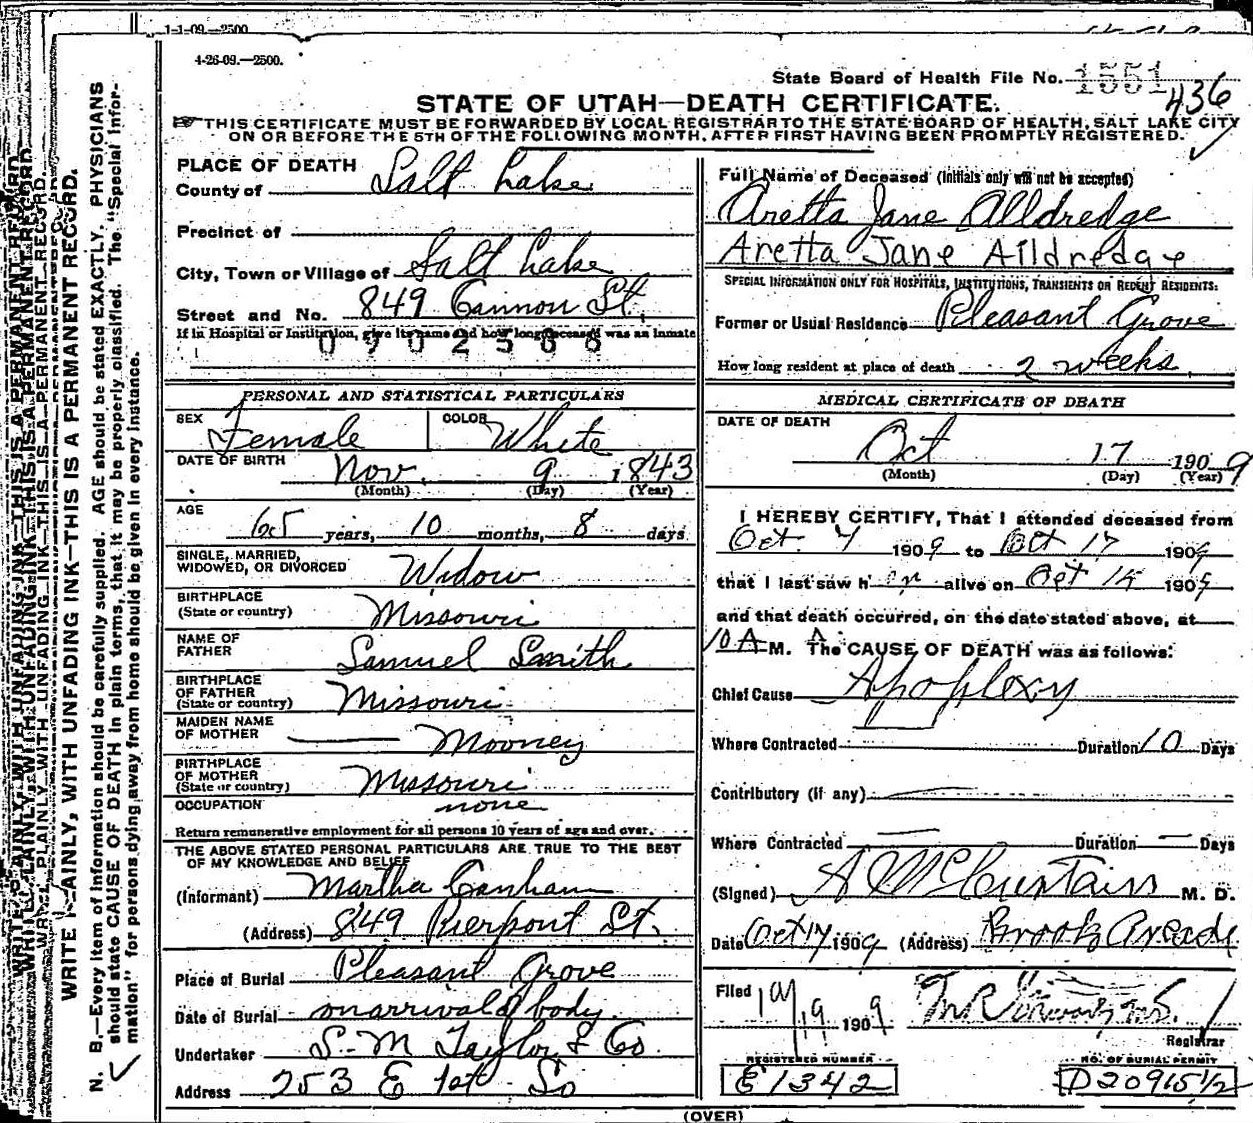 1-1-09.—2500
4-26-09.—2500.
State Board of Health File No. 1551
436
STATE OF UTAH—DEATH CERTIFICATE.
THIS CERTIFICATE MUST BE FORWARDED BY LOCAL REGISTRAR TO THE STATE BOARD OF HEALTH, SALT LAKE CITY
ON OR BEFORE THE 5TH OF THE FOLLOWING MONTH, AFTER FIRST HAVING BEEN PROMPTLY REGISTERED.
WRITE PLAINLY, WITH UNFADING INK—THIS IS A PERMANENT RECORD.
N. B.—Every item of information should be carefully supplied. AGE should be stated EXACTLY. PHYSICIANS
should state CAUSE OF DEATH in plain terms, that it may be properly classified. The "Special Infor-
mation" for persons dying away from home should be given in every instance.
PLACE OF DEATH
County of Salt Lake
Precinct of
City, Town or Village of Salt Lake
Street and No. 849 Cannon St.
If in Hospital or Institution, give its name and how long deceased was an inmate
0902568
PERSONAL AND STATISTICAL PARTICULARS
SEX Female COLOR White
DATE OF BIRTH Nov. 9 1843
(Month) (Day) (Year)
AGE 65 years, 10 months, 8 days
SINGLE, MARRIED,
WIDOWED, OR DIVORCED Widow
BIRTHPLACE
(State or country) Missouri
NAME OF
FATHER Samuel Smith
BIRTHPLACE
OF FATHER
(State or country) Missouri
MAIDEN NAME
OF MOTHER — Mooney
BIRTHPLACE
OF MOTHER
(State or country) Missouri
OCCUPATION none
Return remunerative employment for all persons 10 years of age and over.
THE ABOVE STATED PERSONAL PARTICULARS ARE TRUE TO THE BEST
OF MY KNOWLEDGE AND BELIEF
(Informant) Martha Canham
(Address) 849 Pierpont St.
Place of Burial Pleasant Grove
Date of Burial on arrival of body
Undertaker S. M Taylor & Co
Address 253 E 1st So
Full Name of Deceased (Initials only will not be accepted)
Aretta Jane Alldredge
Aretta Jane Alldredge
SPECIAL INFORMATION ONLY FOR HOSPITALS, INSTITUTIONS, TRANSIENTS OR RECENT RESIDENTS:
Former or Usual Residence Pleasant Grove
How long resident at place of death 2 weeks.
MEDICAL CERTIFICATE OF DEATH
DATE OF DEATH
Oct 17 1909
(Month) (Day) (Year)
I HEREBY CERTIFY, That I attended deceased from
Oct. 7 1909 to Oct 17 1909
that I last saw h er alive on Oct 1909
and that death occurred, on the date stated above, at
10 A M. The CAUSE OF DEATH was as follows:
Chief Cause Apoplexy
Where Contracted Duration 10 Days
Contributory (if any)
Where Contracted — Duration — Days
(Signed) M. D.
Date Oct 17 1909 (Address) Brooks Arcade
Filed 10/19 1909
Registrar
REGISTERED NUMBER
E1342
NO. OF BURIAL PERMIT
D20915 1/2
(OVER)